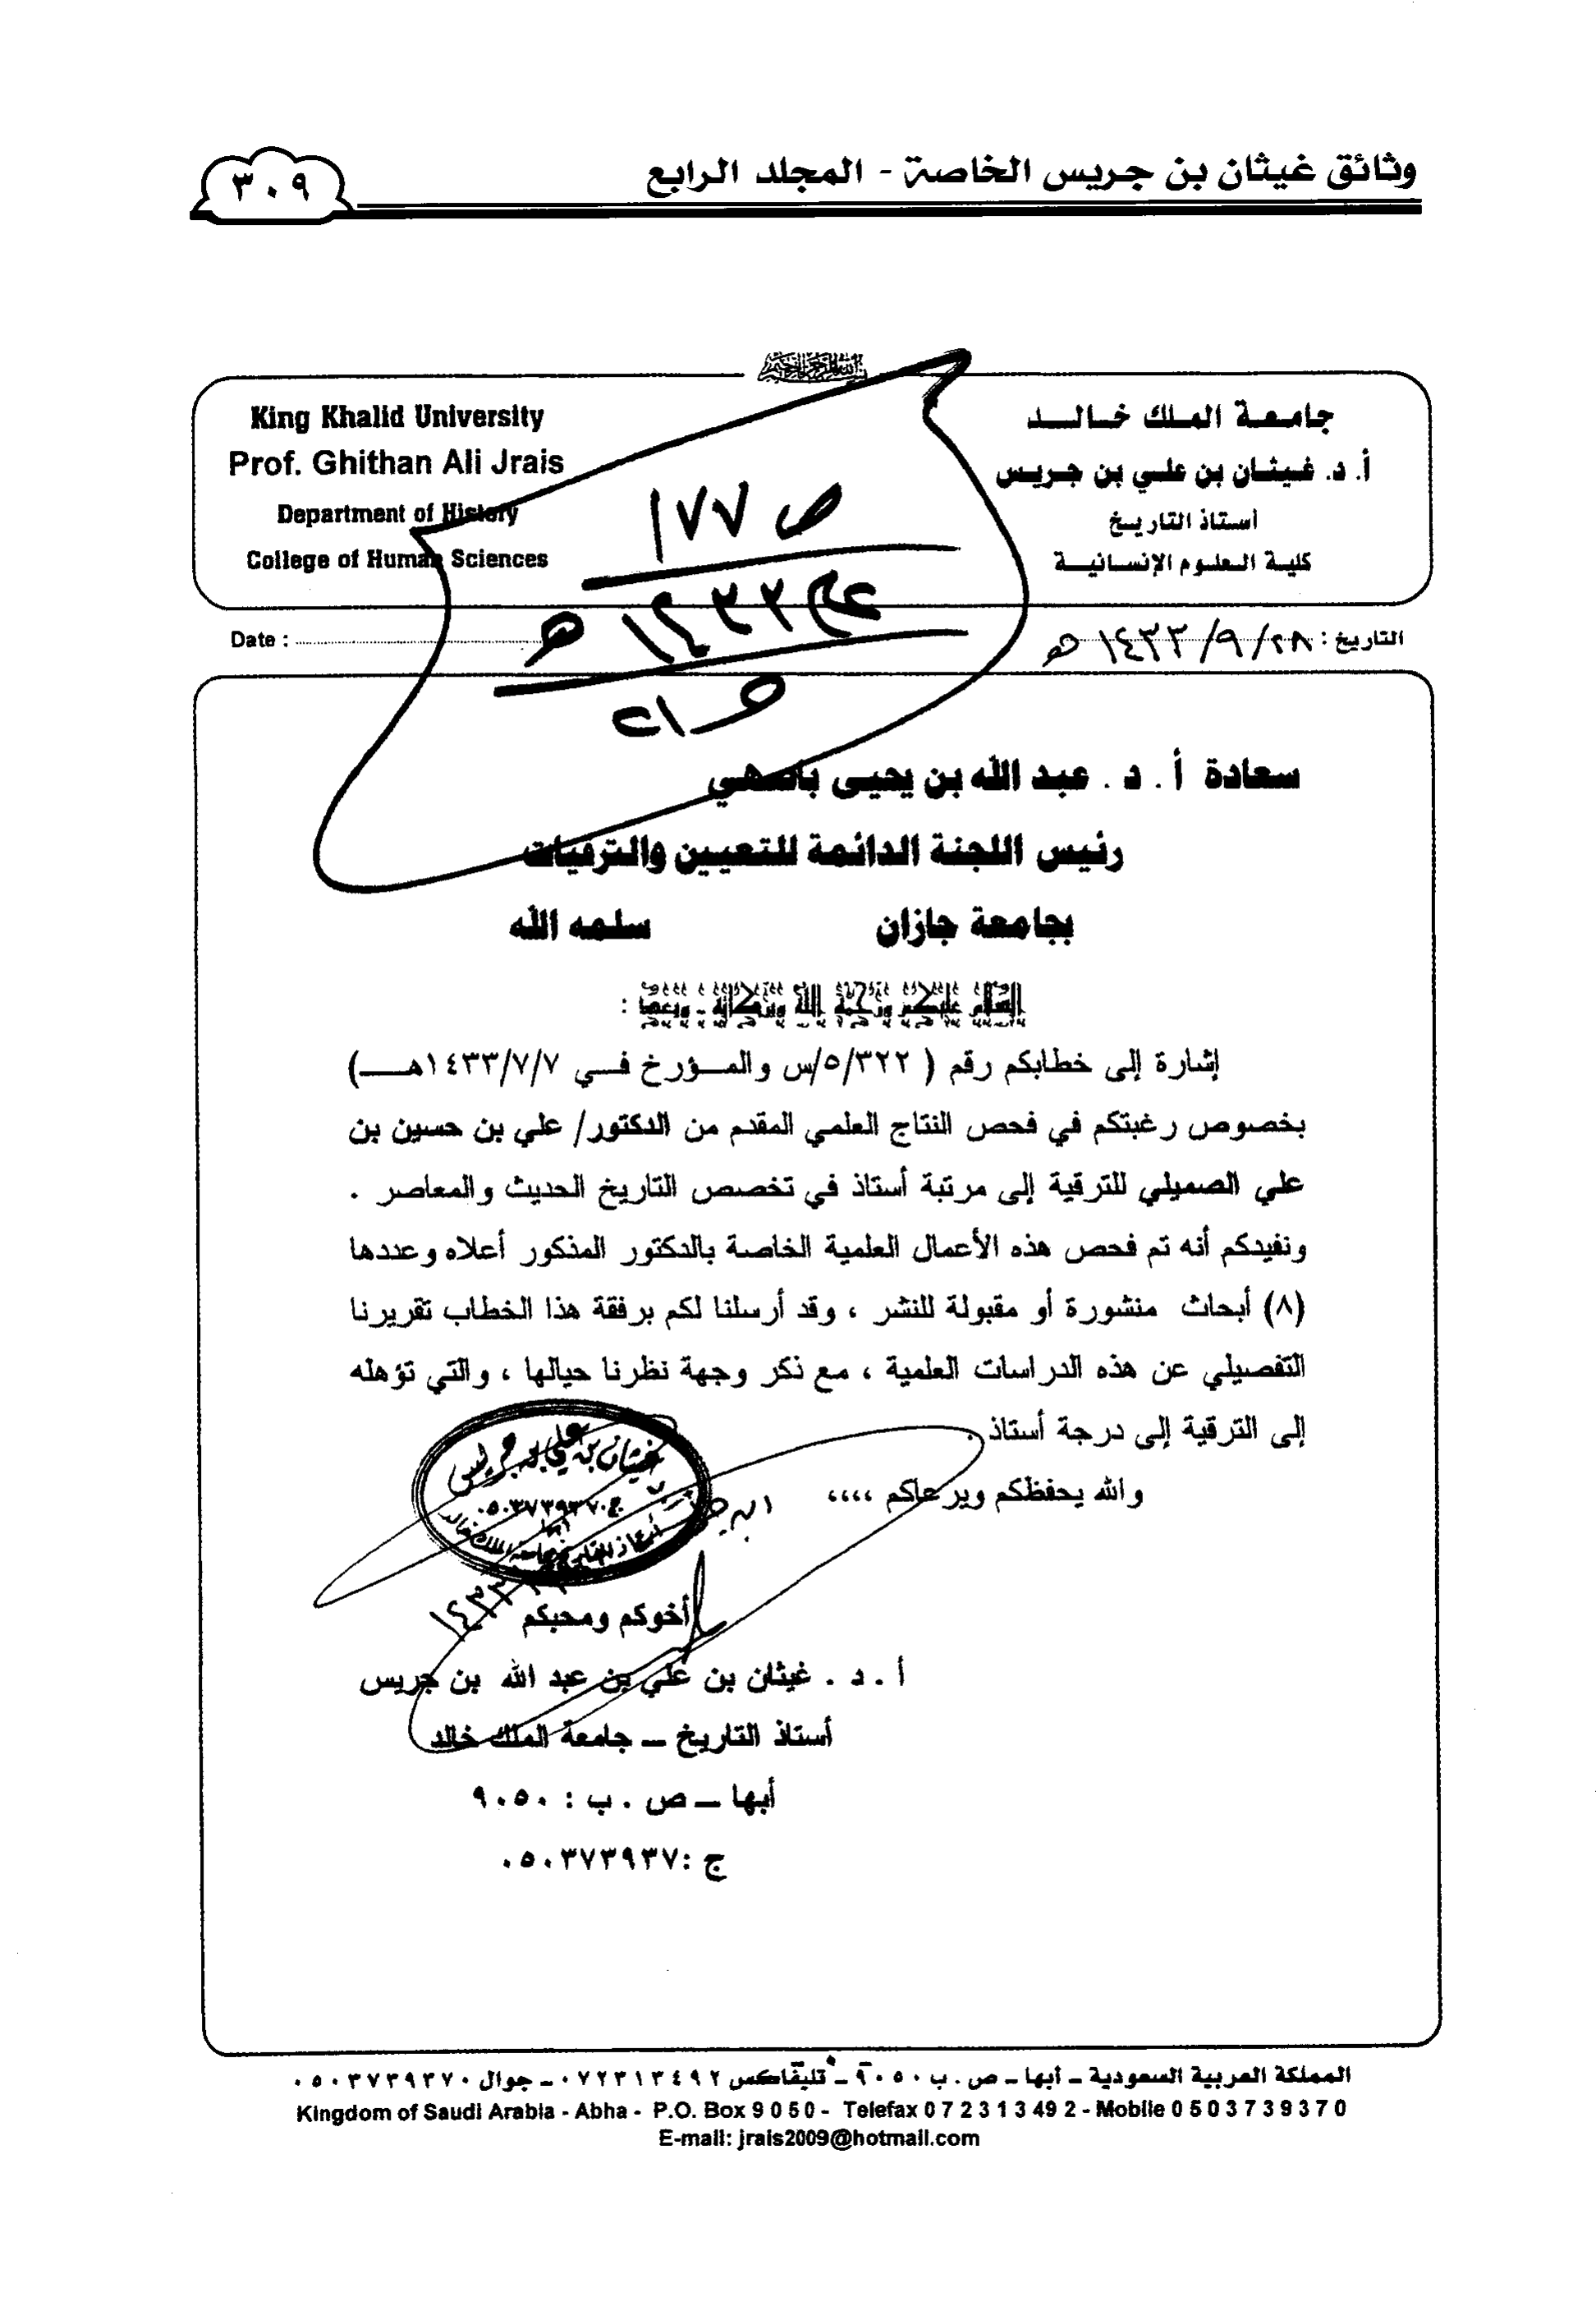 وثائق غيثان بن جريس الخاصة - المجلد الرابع
٣٠٩
بسم الله الرحمن الرحيم
جامعة الملك خالد
أ. د. غيثان بن علي بن جريس
أستاذ التاريخ
كلية العلوم الإنسانية
King Khalid University
Prof. Ghithan Ali Jrais
Department of History
College of Human Sciences
ص ١٧٧
١٤٣٣ هـ
التاريخ : ٢٨/٩/١٤٣٣ هـ
Date :
سعادة أ . د . عبد الله بن يحيى باصهي
رئيس اللجنة الدائمة للتعيين والترقيات
بجامعة جازان سلمه الله
السلام عليكم ورحمة الله وبركاته - وبعد :
إشارة إلى خطابكم رقم ( ٥/٣٢٢/س والمؤرخ في ١٤٣٣/٧/٧هـ)
بخصوص رغبتكم في فحص النتاج العلمي المقدم من الدكتور/ علي بن حسين بن
علي الصميلي للترقية إلى مرتبة أستاذ في تخصص التاريخ الحديث والمعاصر .
ونفيدكم أنه تم فحص هذه الأعمال العلمية الخاصة بالدكتور المذكور أعلاه وعددها
(٨) أبحاث منشورة أو مقبولة للنشر ، وقد أرسلنا لكم برفقة هذا الخطاب تقريرنا
التفصيلي عن هذه الدراسات العلمية ، مع ذكر وجهة نظرنا حيالها ، والتي تؤهله
إلى الترقية إلى درجة أستاذ .
والله يحفظكم ويرعاكم ،،،،
غيثان بن علي بن جريس
ج٠٥٠٣٧٣٩٣٧٠
أبها
أستاذ التاريخ بجامعة الملك خالد
أخوكم ومحبكم
أ . د . غيثان بن علي بن عبد الله بن جريس
أستاذ التاريخ – جامعة الملك خالد
أبها – ص . ب : ٩٠٥٠
ج :٠٥٠٣٧٣٩٣٧
المملكة العربية السعودية – أبها – ص . ب ٩٠٥٠ – تليفاكس ٠٧٢٣١٣٤٩٢ – جوال ٠٥٠٣٧٣٩٣٧٠
Kingdom of Saudi Arabia - Abha - P.O. Box 9 0 5 0 - Telefax 0 7 2 3 1 3 49 2 - Mobile 0 5 0 3 7 3 9 3 7 0
E-mail: jrais2009@hotmail.com